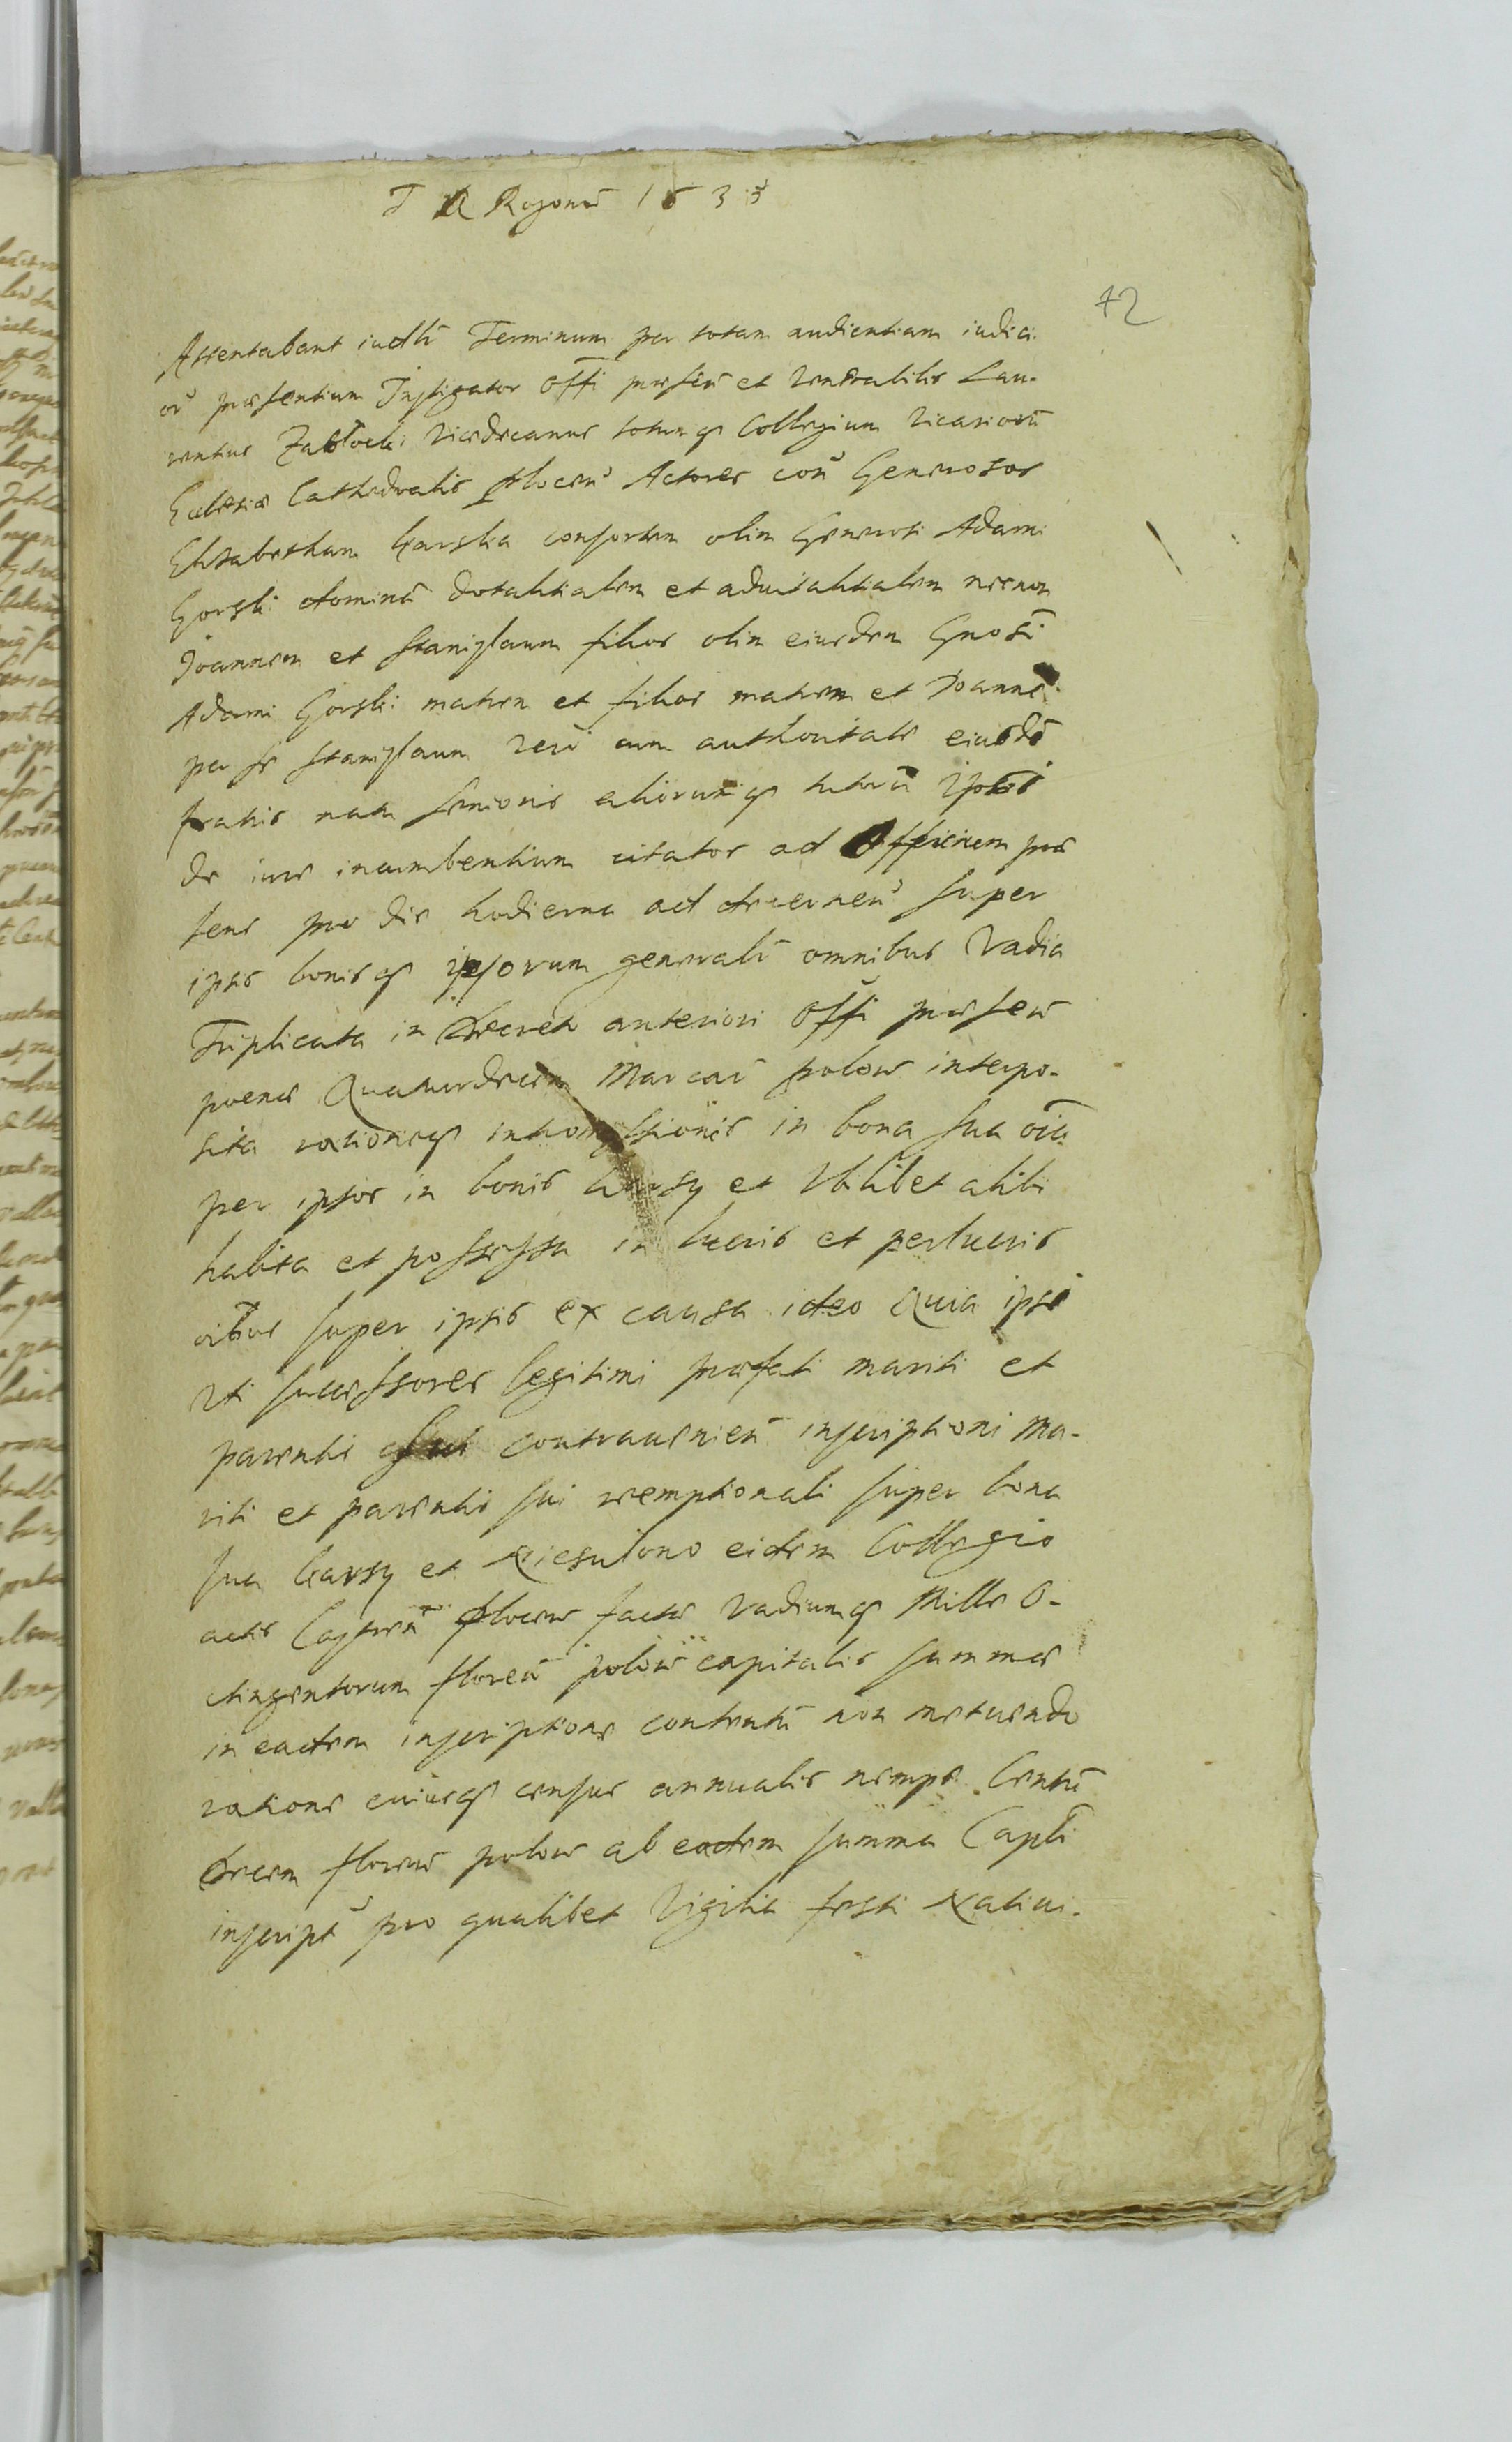 T R Rogonu 1633
42
Attentabant iudlr Terminum per totam audientiam iudici
oru praesentium Instigator Offi praesen et Venerabilis Lau-
rentius Zablocki Vicedecanus totumq Collegium Vicarioru
Ecclesiae Cathedralis plocen Actores con Generosos
Elisabetham Garska consortem olim Generosi Adami
Gorski dominã dotalitialem et aduitalitialem necnon
Joannem et Stanislaum filios olim eiusdem Gnosi
Adami Gorski matrem et filios matrem et Joanne
per se Stanislaum vero cum authoritate eiusde
fratris natu senioris aliorumq tutoru ipsos
de iure incumbentium citatos ad Officium prae
sens pro die hodierna ad decernen super
ipsis bonisq ipsorum generali omnibus Vadia
Triplicata in decreto anteriori Offi praesen
poenae Quatuordecim Marcaru polon interpo-
sita rationeq intromissionis in bona sua oia
per ipsos in bonis Garsy et Vbilibet alibi
habita et possessa in lucris et perlucris
oibus super ipsis ex causa ideo Quia ipsi
Vti successores legitimi praefati mariti et
parentis contrauenien inscriptioni Ma-
riti et parentis sui reemptionali super bona
sua Garsy et eidem Collegio
actis Castren plocen factae Vadiumq Mille O-
ctingentorum floren polon capitalis summae
in eadem inscriptione contentu non metuendo
ratione cuiusq census annualis nempe Centu
decem floren polon ab eadem summa Capli
inscript pro qualibet Vigilia festi Natiui-